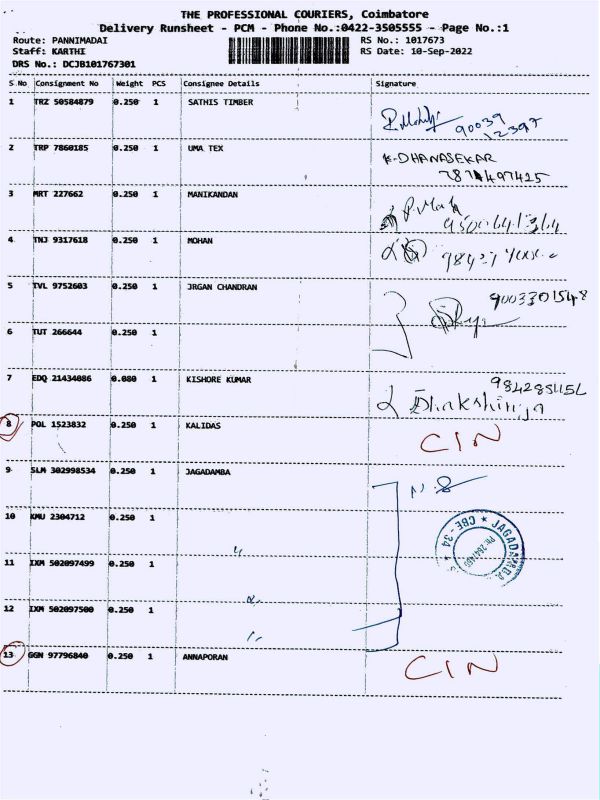 THE PROFESSIONAL COURIERS, Coimbatore
Delivery Runsheet - PCM - Phone No.:0422-3505555 - Page No.:1
Route: PANNIMADAI RS No.: 1017673
Staff: KARTHI RS Date: 10-Sep-2022
DRS No.: DCJB101767301
S No Consignment No Weight PCS Consignee Details Signature
1 TRZ 50584879 0.250 1 SATHIS TIMBER
90039
12397
2 TRP 7860185 0.250 1 UMA TEX K. DHANASEKAR
7871497425
3 MRT 227662 0.250 1 MANIKANDAN
4 TNJ 9317618 0.250 1 MOHAN
5 TVL 9752603 0.250 1 JRGAN CHANDRAN 9003301548
6 TUT 266644 0.250 1
7 EDQ 21434086 0.080 1 KISHORE KUMAR
8 POL 1523832 0.250 1 KALIDAS CIN
9 SLM 302998534 0.250 1 JAGADAMBA
10 KMU 2304712 0.250 1
11 IXM 502097499 0.250 1
12 IXM 502097500 0.250 1
13 GGN 97796840 0.250 1 ANNAPORAN CIN